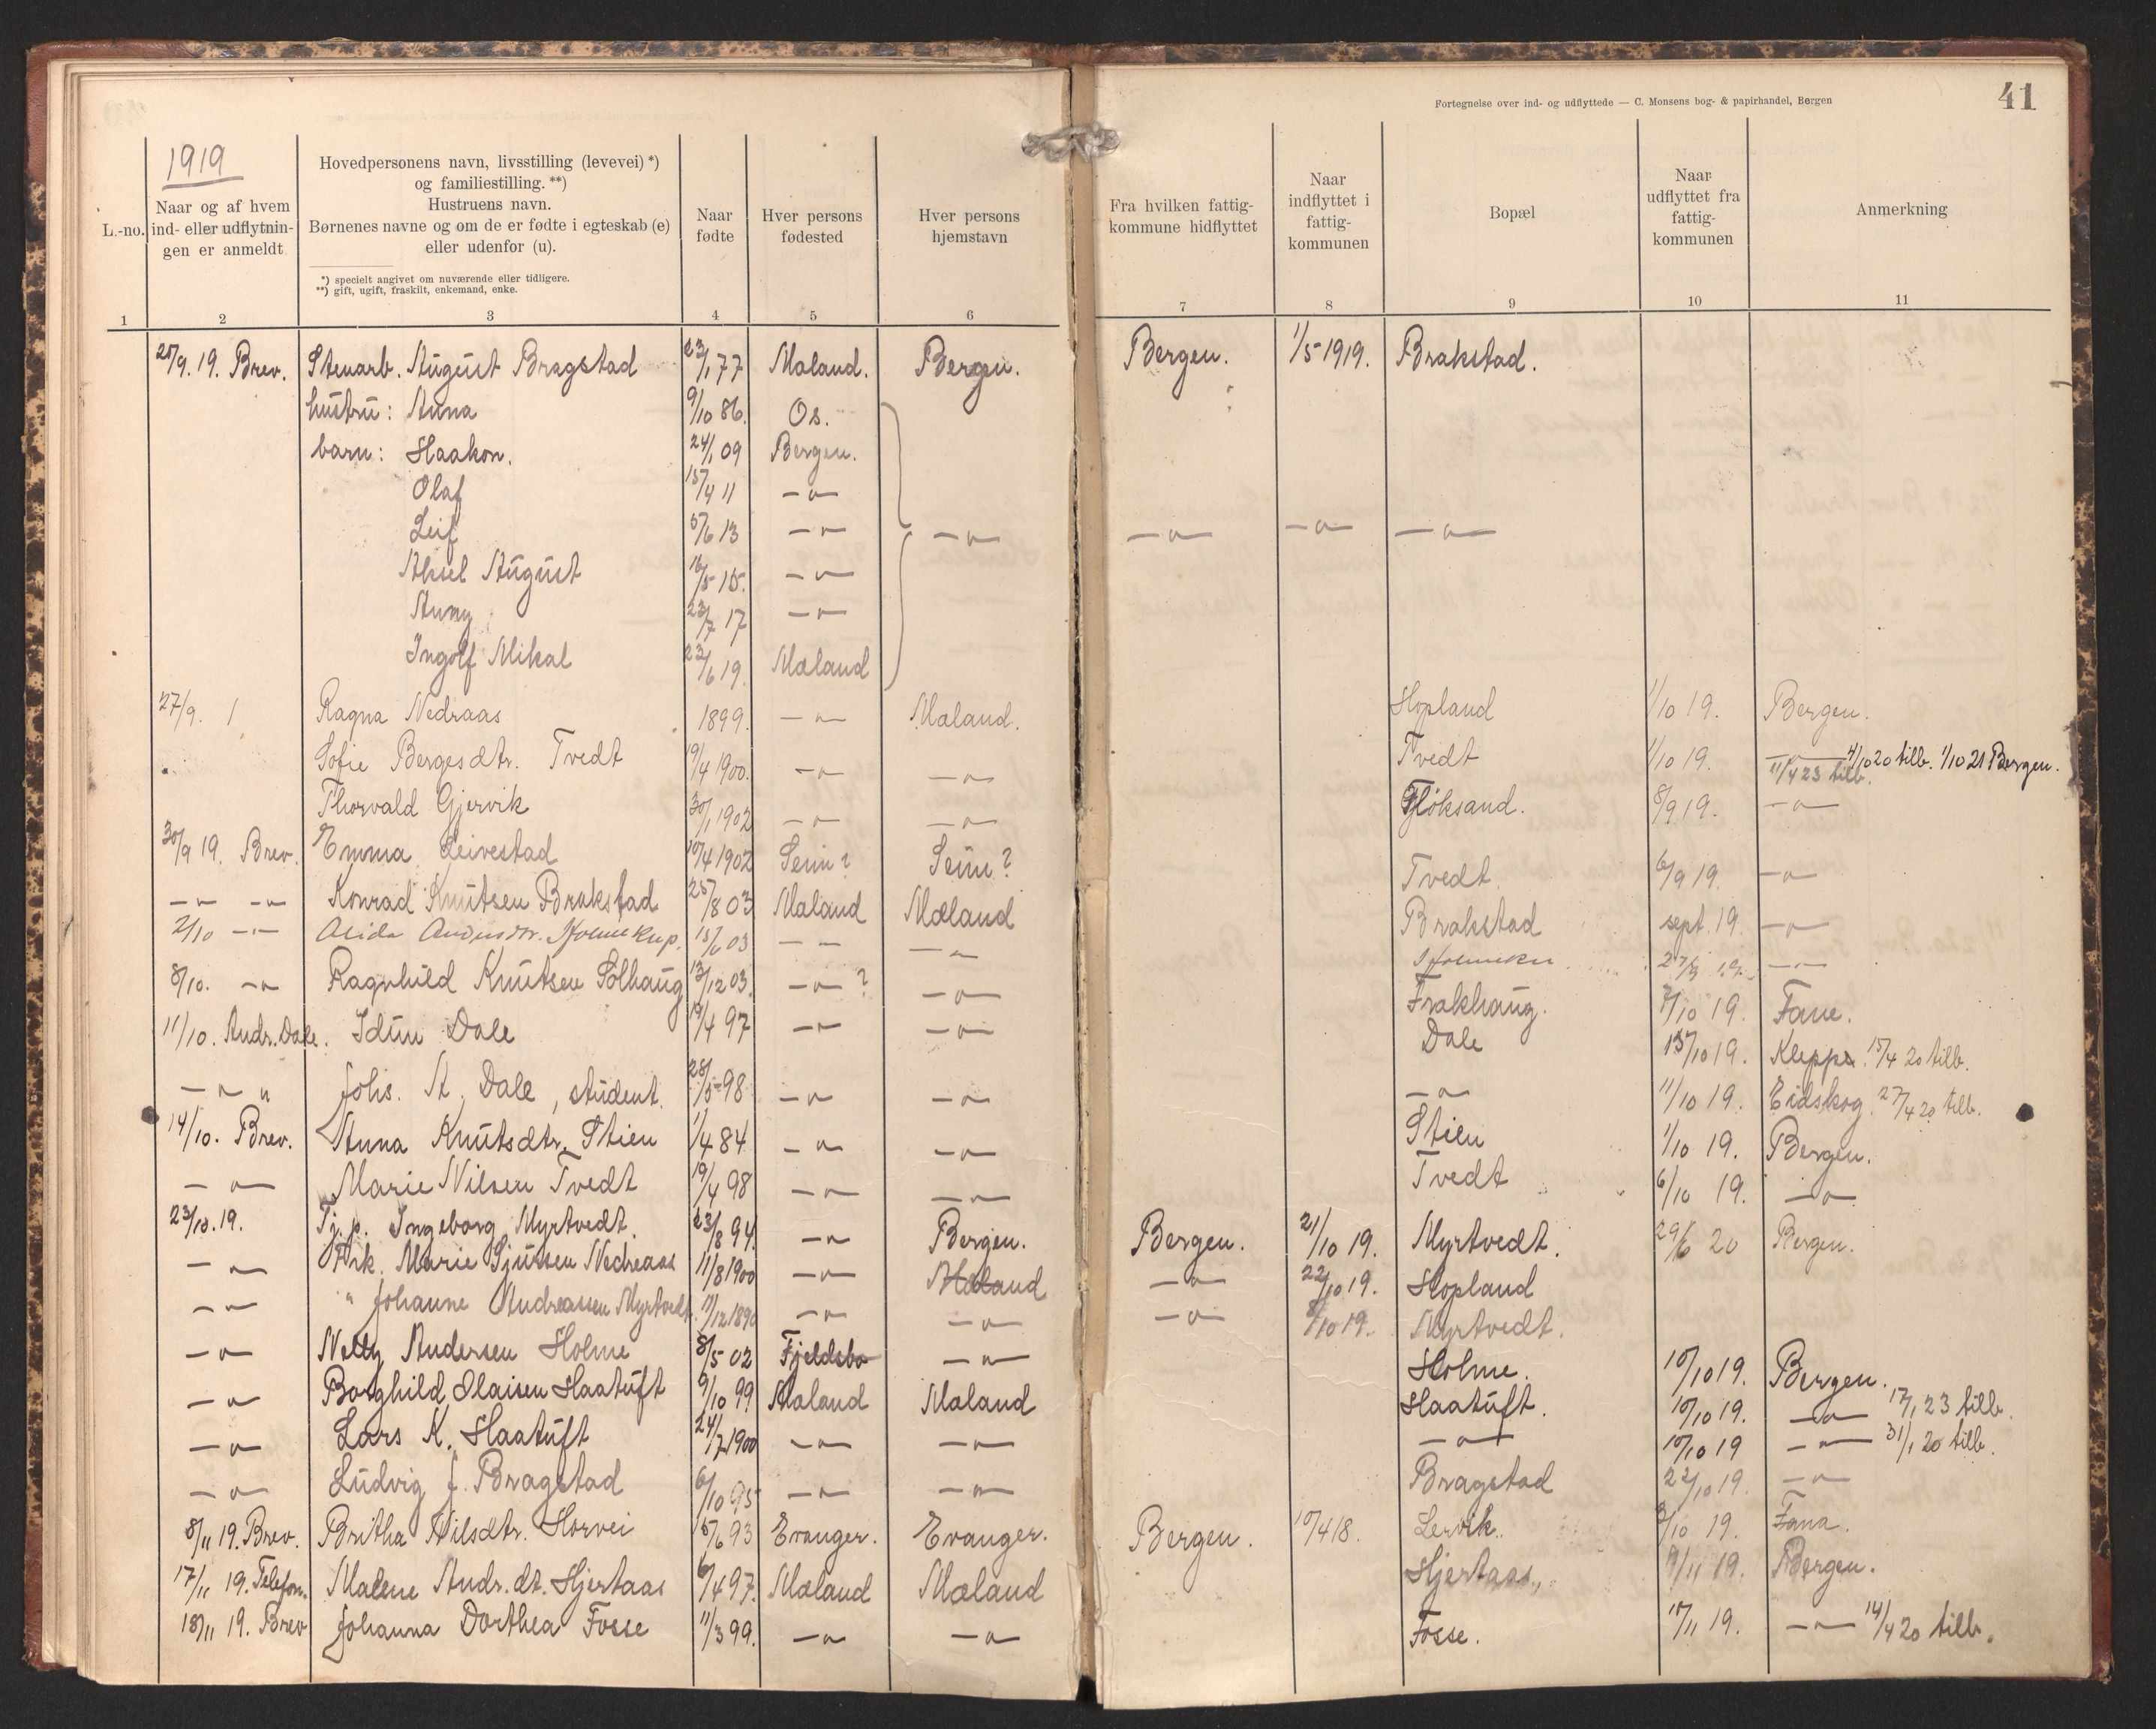 Fortegnelse over ind- og udflyttede — C. Monsens bog- & papirhandel, Bergen
41
1919
L.-no.
Naar og af hvem ind- eller udflytnin- gen er anmeldt
Hovedpersonens navn, livsstilling (levevei) *) og familiestilling. **)
Hustruens navn.
Børnenes navne og om de er fødte i egteskab (e) eller udenfor (u).
*) specielt angivet om nuværende eller tidligere.
**) gift, ugift, fraskilt, enkemand, enke.
Naar fødte
Hver persons fødested
Hver persons hjemstavn
Fra hvilken fattig- kommune hidflyttet
Naar indflyttet i fattig- kommunen
Bopæl
Naar udflyttet fra fattig- kommunen
Anmerkning
1 2 3 4 5 6 7 8 9 10 11
25/9. 19. Brev. Stenarb. August Bragstad 23/1 77 Mæland. Bergen. Bergen. 1/5 1919. Brakstad.
hustru: Anna 9/10 86. Os.
barn: Haakon. 24/1 09 Bergen.
Olaf 15/4 11 —"—
Leif 5/6 13 —"— —"— —"— —"— —"—
Aksel August 16/5 15. —"—
Anny 23/7 17 —"—
Ingolf Mikal 23/6 19. Mæland
27/9. Ragna Nedraas 1899. —"— Mæland. Hopland 1/10 19. Bergen.
Sofie Bergesdtr. Tvedt 19/4 1900. —"— —"— Tvedt 1/10 19. —"— 4/10 20 tilb. 1/10 21 Bergen.
11/4 23 tilb.
Thorvald Gjervik 30/1 1902 —"— —"— Fløksand. 8/9 19. —"—
30/9 19. Brev. Emma Leivestad 10/4 1902 Seim? Seim? Tvedt. 6/9 19. —"—
—"— —"— Konrad Knutsen Brakstad 25/8 03 Mæland Mæland Brakstad sept. 19. —"—
2/10 —"— Alida 15/6 03 —"— —"— 19. —"—
8/10. —"— Ragnhild Knutsen Solhaug 13/12 03. —"— ? —"— Frakhaug. 7/10 19. Fane.
11/10. Andr. Dale. Idun Dale 19/4 97 —"— —"— Dale 15/10 19. Klepps. 15/4 20 tilb.
—"— " Johs. A. Dale, student. 28/5 98 —"— —"— —"— 11/10 19. Eidskog. 27/4 20 tilb.
14/10. Brev. Anna Knutsdtr. Stien 1/4 84 —"— —"— Stien 1/10 19. Bergen.
—"— Marie Nilsen Tvedt 19/4 98 —"— —"— Tvedt 6/10 19. —"—
23/10. 19. Tj.p. Ingeborg Myrtvedt. 23/8 94. —"— Bergen. Bergen. 21/10 19. Myrtvedt. 29/6 20 Bergen.
—"— Frk. Marie Sjursen Nedreaas 11/8 1900 —"— Mæland —"— 22/10 19. Hopland
—"— " Johanne Andreassen Myrtvedt. 11/12 1890 —"— —"— —"— 8/10 19. Myrtvedt.
—"— Nelly Andersen Holme 8/5 02 Fjeldsbø —"— Holme. 10/10 19. Bergen.
—"— Borghild Olaisen Haatuft 9/10 99 Mæland Mæland Haatuft. 10/10 19. —"— 17/1 23 tilb.
—"— Lars K. Haatuft 24/7 1900 —"— —"— —"— 10/10 19 —"— 31/1 20 tilb.
—"— Ludvig J. Bragstad 6/10 95 —"— —"— Bragstad 22/10 19. —"—
8/11 19. Brev. Britha Nilsdtr. Horvei 15/6 93 Evanger. Evanger. Bergen. 10/4 18. Lervik. 3/10 19. Fana.
17/11 19. Telefon. Malene Andr. dt. Hjertaas 6/4 97. Mæland Mæland Hjertaas, 9/11 19. Bergen.
18/11 19. Brev Johanna Dorthea Fosse 11/3 99. —"— —"— Fosse. 15/11 19. —"— 14/4 20 tilb.